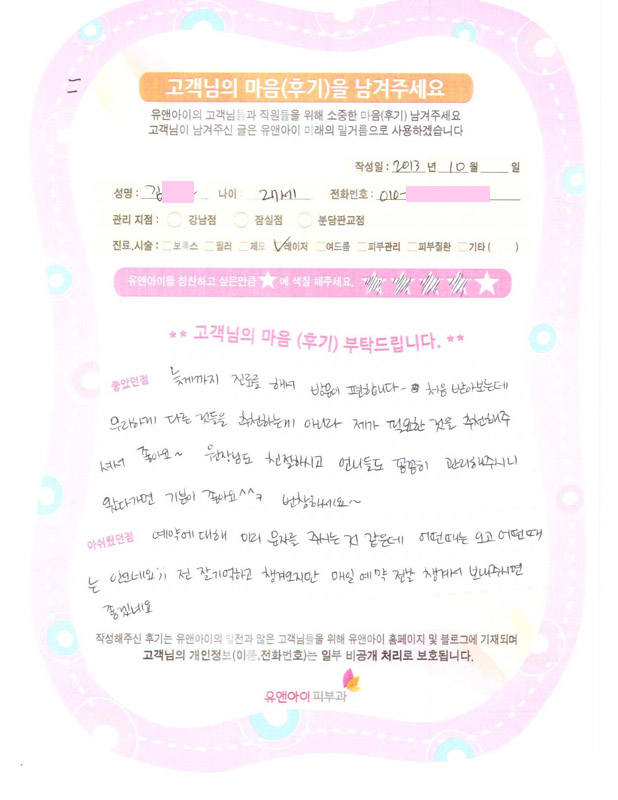 고객님의 마음(후기)을 남겨주세요
유앤아이의 고객님들과 직원들을 위해 소중한 마음(후기) 남겨주세요
고객님이 남겨주신 글은 유앤아이 미래의 밑거름으로 사용하겠습니다
작성일 : 2013 년 10 월 일
성명 : 김 나이 : 27세 전화번호 : 010-
관리 지점 : 강남점 잠실점 분당판교점
진료.시술 : 보톡스 필러 제모 레이저 여드름 피부관리 피부질환 기타 ( )
유앤아이를 칭찬하고 싶은만큼 ★에 색칠 해주세요. ★★★★★
** 고객님의 마음 (후기) 부탁드립니다. **
좋았던점 늦게까지 진료를 해서 방문이 편합니다~ 처음 받아보는데
무리하게 다른 것들을 추천하는게 아니라 제가 필요한 것을 추천해주
셔서 좋아요~ 원장님도 친절하시고 언니들도 꼼꼼히 관리해주시니
왔다가면 기분이 좋아요^^ 번창하세요~
아쉬웠던점 예약에 대해 미리 문자를 주시는 것 같은데 어떤때는 오고 어떤때
는 안오네요;; 전 잘기억하고 챙겨오지만 매일 예약 전날 챙겨서 보내주시면
좋겠네요
작성해주신 후기는 유앤아이의 발전과 많은 고객님들을 위해 유앤아이 홈페이지 및 블로그에 기재되며
고객님의 개인정보(이름,전화번호)는 일부 비공개 처리로 보호됩니다.
유앤아이 피부과